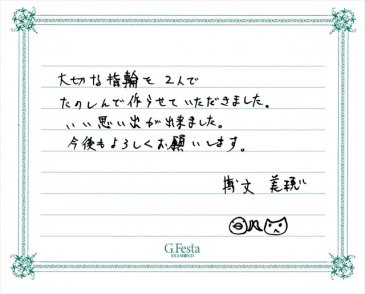 大切な指輪を2人で
たのしんで作らせていただきました。
いい思い出が出来ました。
今後もよろしくお願いします。
G.Festa
DIAMOND